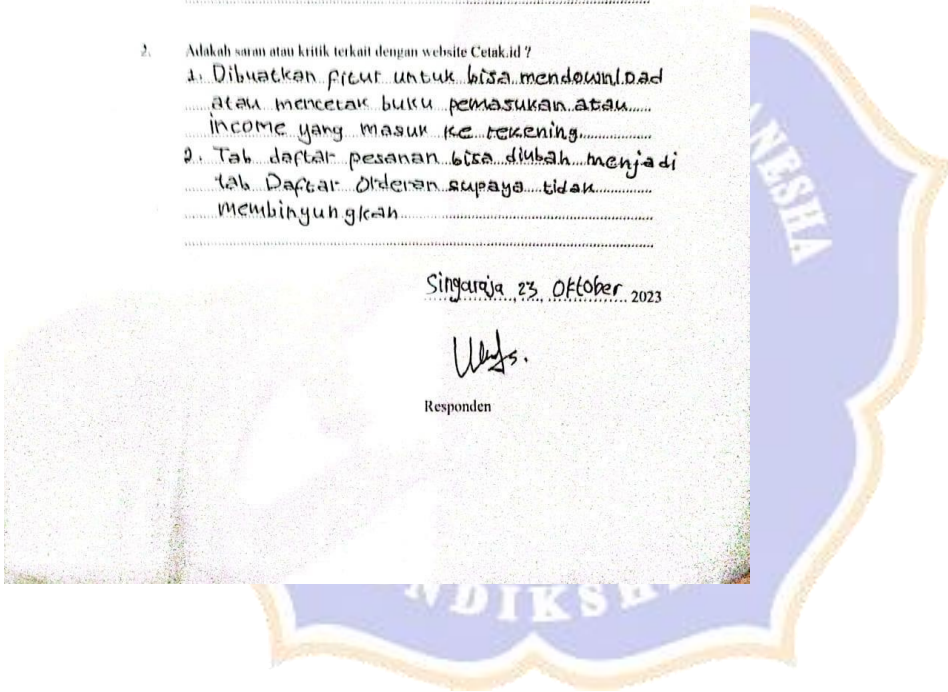 2. Adakah saran atau kritik terkait dengan website Cetak.id ?
1. Dibuatkan fitur untuk bisa mendownload
atau mencetak buku pemasukan atau
income yang masuk ke rekening.
2. Tab daftar pesanan bisa diubah menjadi
tab Daftar Orderan supaya tidak
membingungkan
Singaraja, 23, Oktober 2023
Responden
NESHA
NDIKSHA